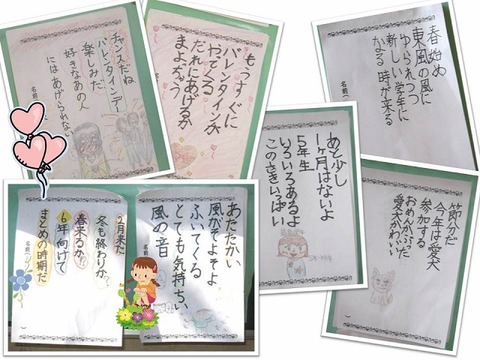 チャンスだね
バレンタインデー
楽しみだ
好きなあの人
にはあげられない
名前
もうすぐに
バレンタインが
やってくる
だれにあげるか
まよっちゃう
名前
春始め
東風の風に
ゆられつつ
新しい学年に
かよる時が来る
名前
あと少し
1ヶ月はないよ
5年生
いろいろあるよ
このさきいっぱい
節分だ
今年は愛犬
参加する
おめんかぶった
愛犬かわいい
名前
2月来た
冬も終わりか
春来るか
6年向けて
まとめの時期だ
名前
あたたかい
風がそよそよ
ふいてくる
とても気持ちい
風の音
名前